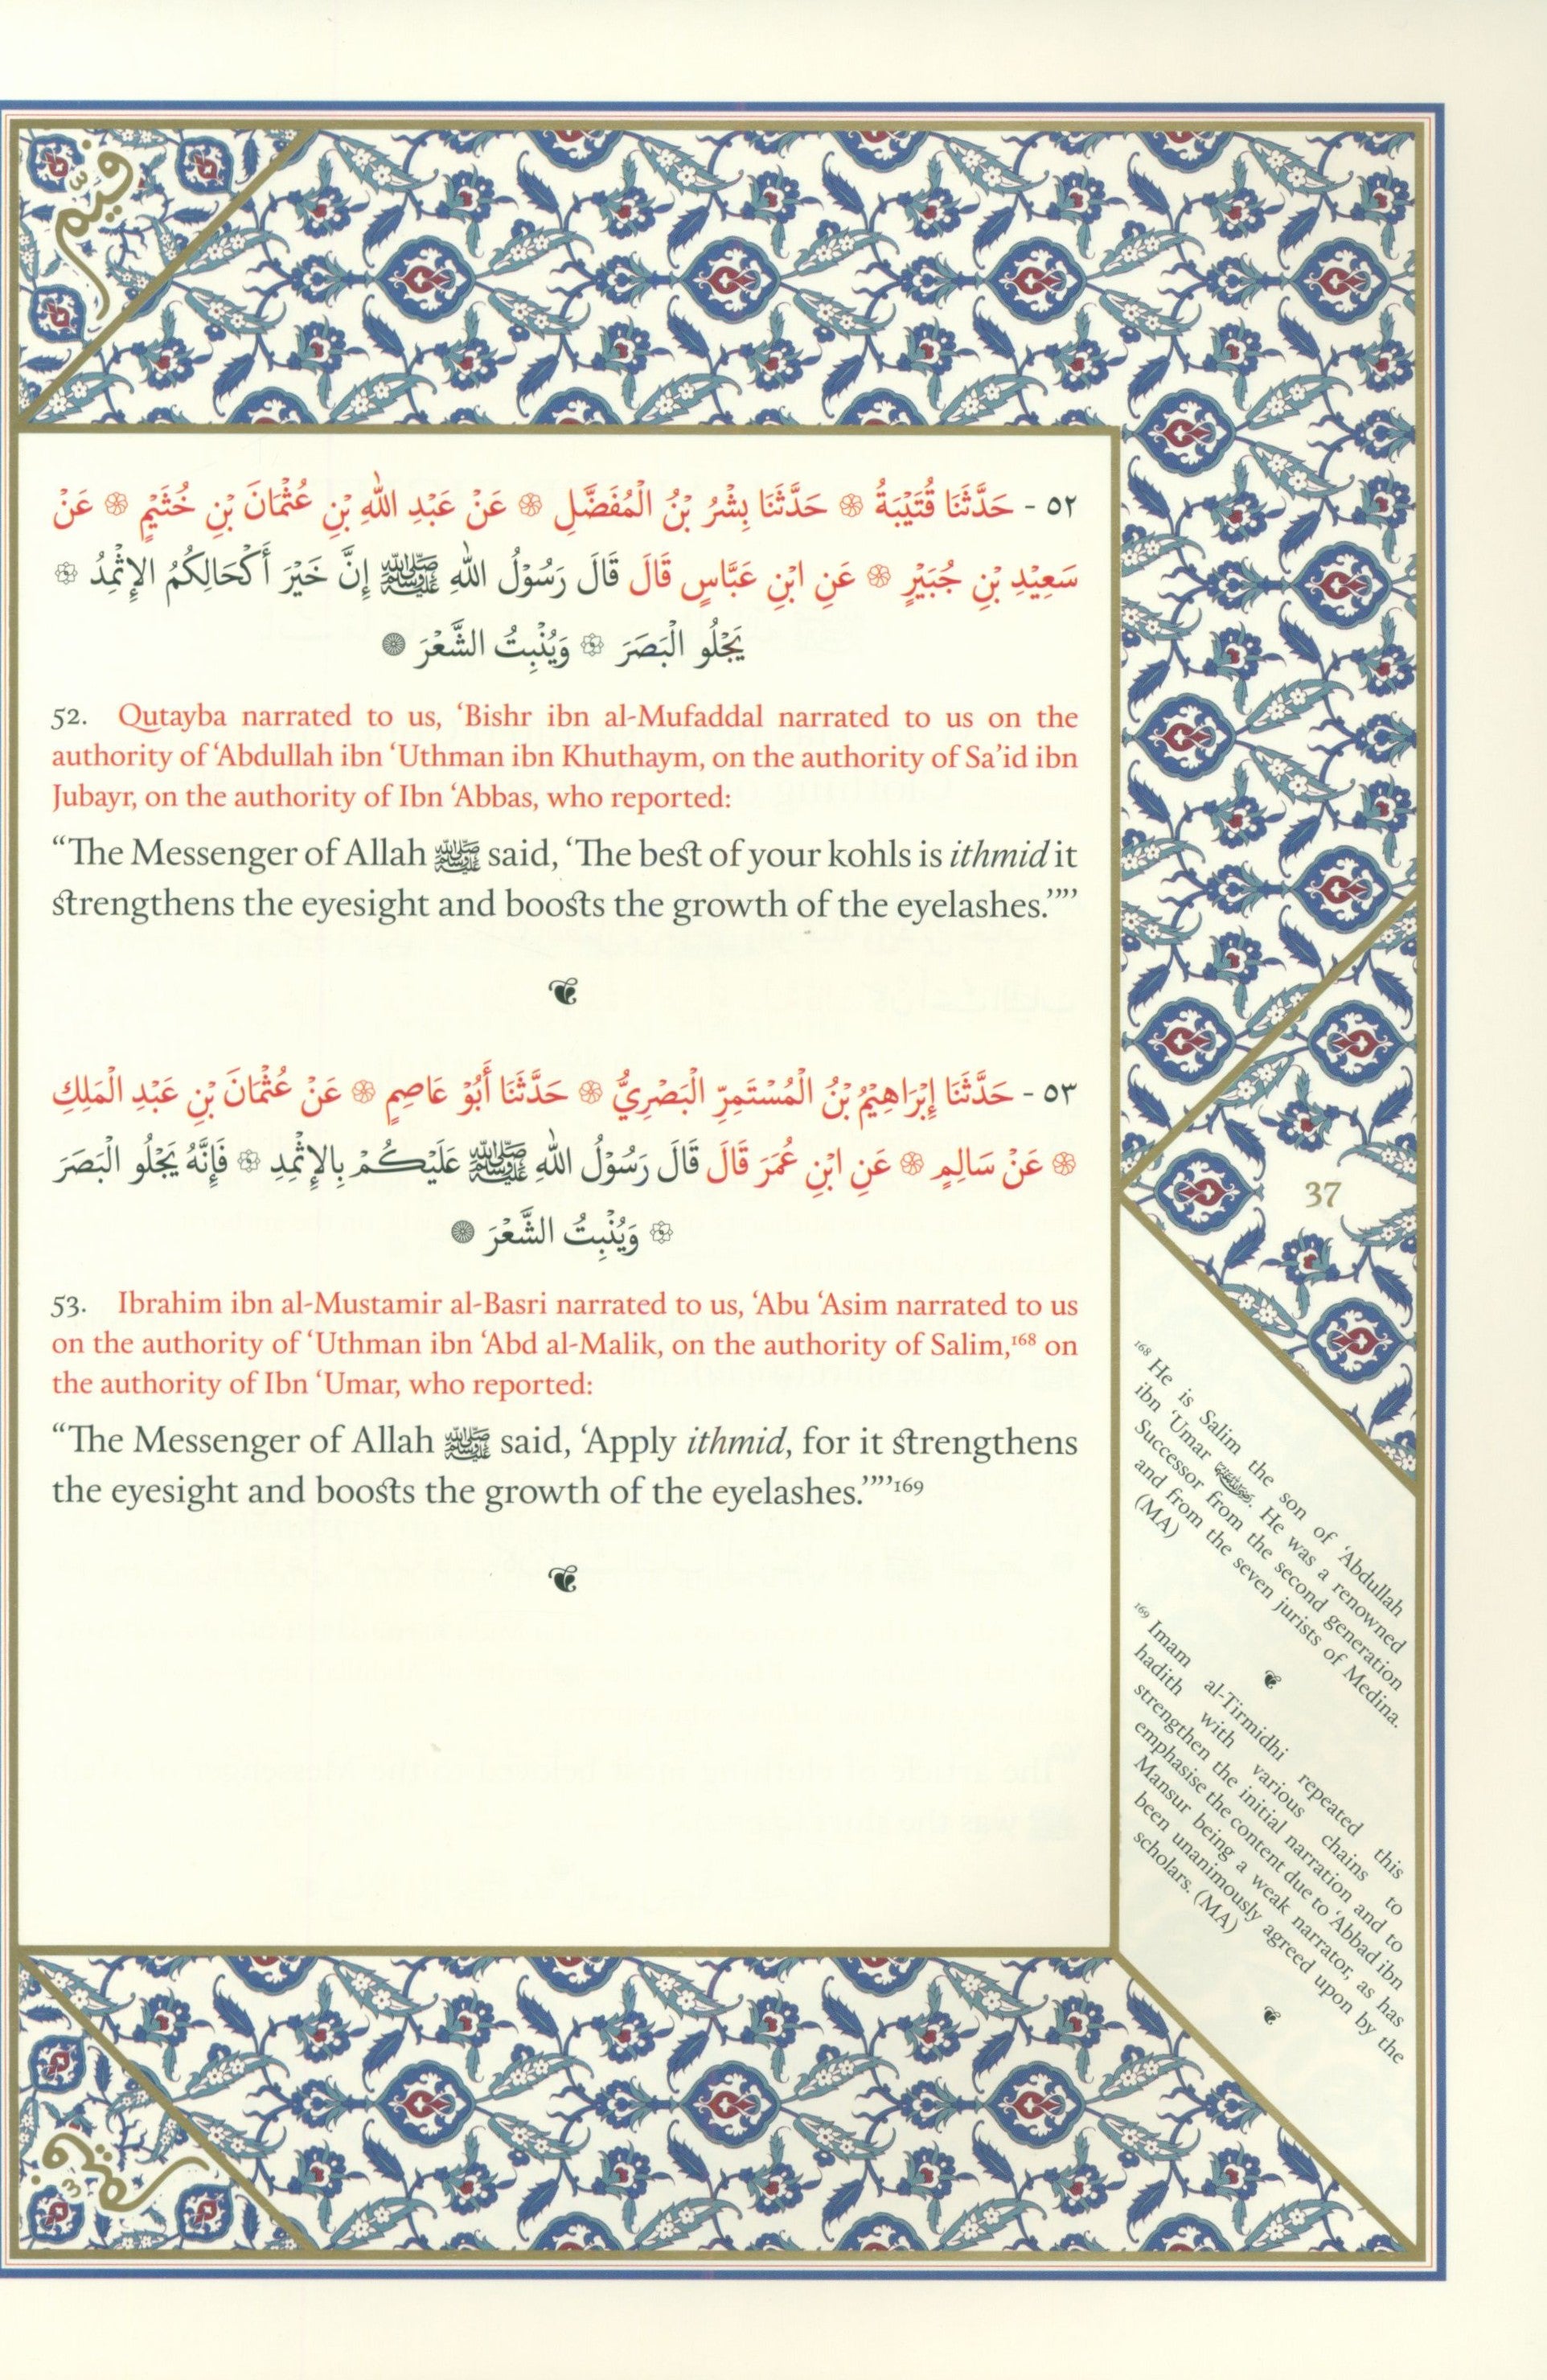 ٥٢ - حَدَّثَنَا قُتَيْبَةُ ۞ حَدَّثَنَا بِشْرُ بْنُ الْمُفَضَّلِ ۞ عَنْ عَبْدِ اللهِ بْنِ عُثْمَانَ بْنِ خُثَيْمٍ ۞ عَنْ
سَعِيْدِ بْنِ جُبَيْرٍ ۞ عَنِ ابْنِ عَبَّاسٍ قَالَ قَالَ رَسُوْلُ اللهِ ﷺ إِنَّ خَيْرَ أَكْحَالِكُمُ الإِثْمِدُ ۞
يَجْلُو الْبَصَرَ ۞ وَيُنْبِتُ الشَّعْرَ ۞
52. Qutayba narrated to us, ‘Bishr ibn al-Mufaddal narrated to us on the
authority of ‘Abdullah ibn ‘Uthman ibn Khuthaym, on the authority of Sa’id ibn
Jubayr, on the authority of Ibn ‘Abbas, who reported:
“The Messenger of Allah ﷺ said, ‘The best of your kohls is ithmid it
strengthens the eyesight and boosts the growth of the eyelashes.’”’
٥٣ - حَدَّثَنَا إِبْرَاهِيْمُ بْنُ الْمُسْتَمِرِّ الْبَصْرِيُّ ۞ حَدَّثَنَا أَبُوْ عَاصِمٍ ۞ عَنْ عُثْمَانَ بْنِ عَبْدِ الْمَلِكِ
۞ عَنْ سَالِمٍ ۞ عَنِ ابْنِ عُمَرَ قَالَ قَالَ رَسُوْلُ اللهِ ﷺ عَلَيْكُمْ بِالإِثْمِدِ ۞ فَإِنَّهُ يَجْلُو الْبَصَرَ
۞ وَيُنْبِتُ الشَّعْرَ ۞
53. Ibrahim ibn al-Mustamir al-Basri narrated to us, ‘Abu ‘Asim narrated to us
on the authority of ‘Uthman ibn ‘Abd al-Malik, on the authority of Salim,¹⁶⁸ on
the authority of Ibn ‘Umar, who reported:
“The Messenger of Allah ﷺ said, ‘Apply ithmid, for it strengthens
the eyesight and boosts the growth of the eyelashes.’”’¹⁶⁹
37
¹⁶⁸ He is Salim the son of ‘Abdullah
ibn ‘Umar. He was a renowned
Successor from the second generation
and from the seven jurists of Medina.
(MA)
¹⁶⁹ Imam al-Tirmidhi repeated this
hadith with various chains to
strengthen the initial narration and to
emphasise the content due to ‘Abbad ibn
Mansur being a weak narrator, as has
been unanimously agreed upon by the
scholars. (MA)